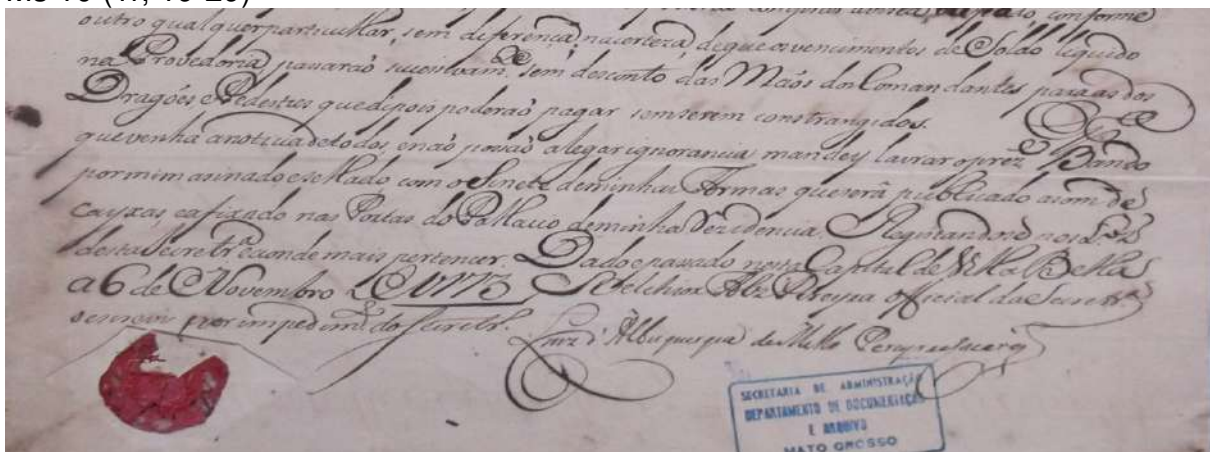 outro qualquer particullar, sem diferença, na certeza, de que os vencimentos de Soldo liquido
na Provedoria, passaraõ sucesivam.te sem desconto das Mãos dos Comandantes para as dos
Dragões e Pedestres que depois poderaõ pagar sem serem constrangidos.
que venha a noticia de todos, e naõ posaõ alegar ignorancia mandey lavrar o prez.te Bando
por mim asinado e sellado com o Sinete de minhas Armas que serâ publicado a som de
Cayxas, e afixado nas Portas do Pallacio de minha Rezidencia. Registandose nos L.os
desta Secretr.a e aonde mais pertencer. Dado e passado nesta Capital de Villa Bella
a 6 de Novembro 1773 Pereyra official da Secretr.a
por impedim.to do Secretr.o
Luiz d'Albuquerque de Mello Pereyra e Caceres
SECRETARIA DE ADMINISTRAÇÃO
DEPARTAMENTO DE DOCUMENTAÇÃO
E ARQUIVO
MATO GROSSO